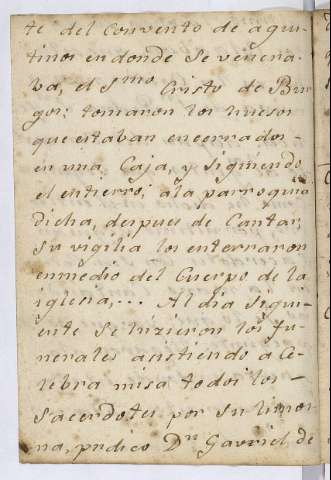 te del Convento de agus-
tinos en donde se venera-
ba, el Smo Cristo de Bur
gos: tomaron los huesos
que estaban encerrados-
en una Caja, y siguiendo
el entierro, á la parroquia
dicha, despues de Cantar,
su vigilia los enterraron
enmedio del Cuerpo de la
iglesia,... Al dia sigui-
ente se hizieron los fu-
nerales asistiendo a Ce-
lebra misa todos los-
Sacerdotes por su limos-
na, predico Dn Gavriel de